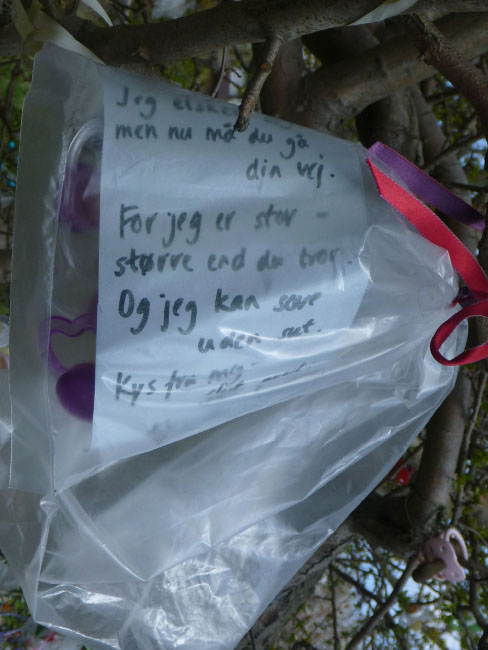 Jeg elsker
men nu må du gå
din vej.
For jeg er stor -
større end du tror.
Og jeg kan sove
uden sut.
Kys fra mig